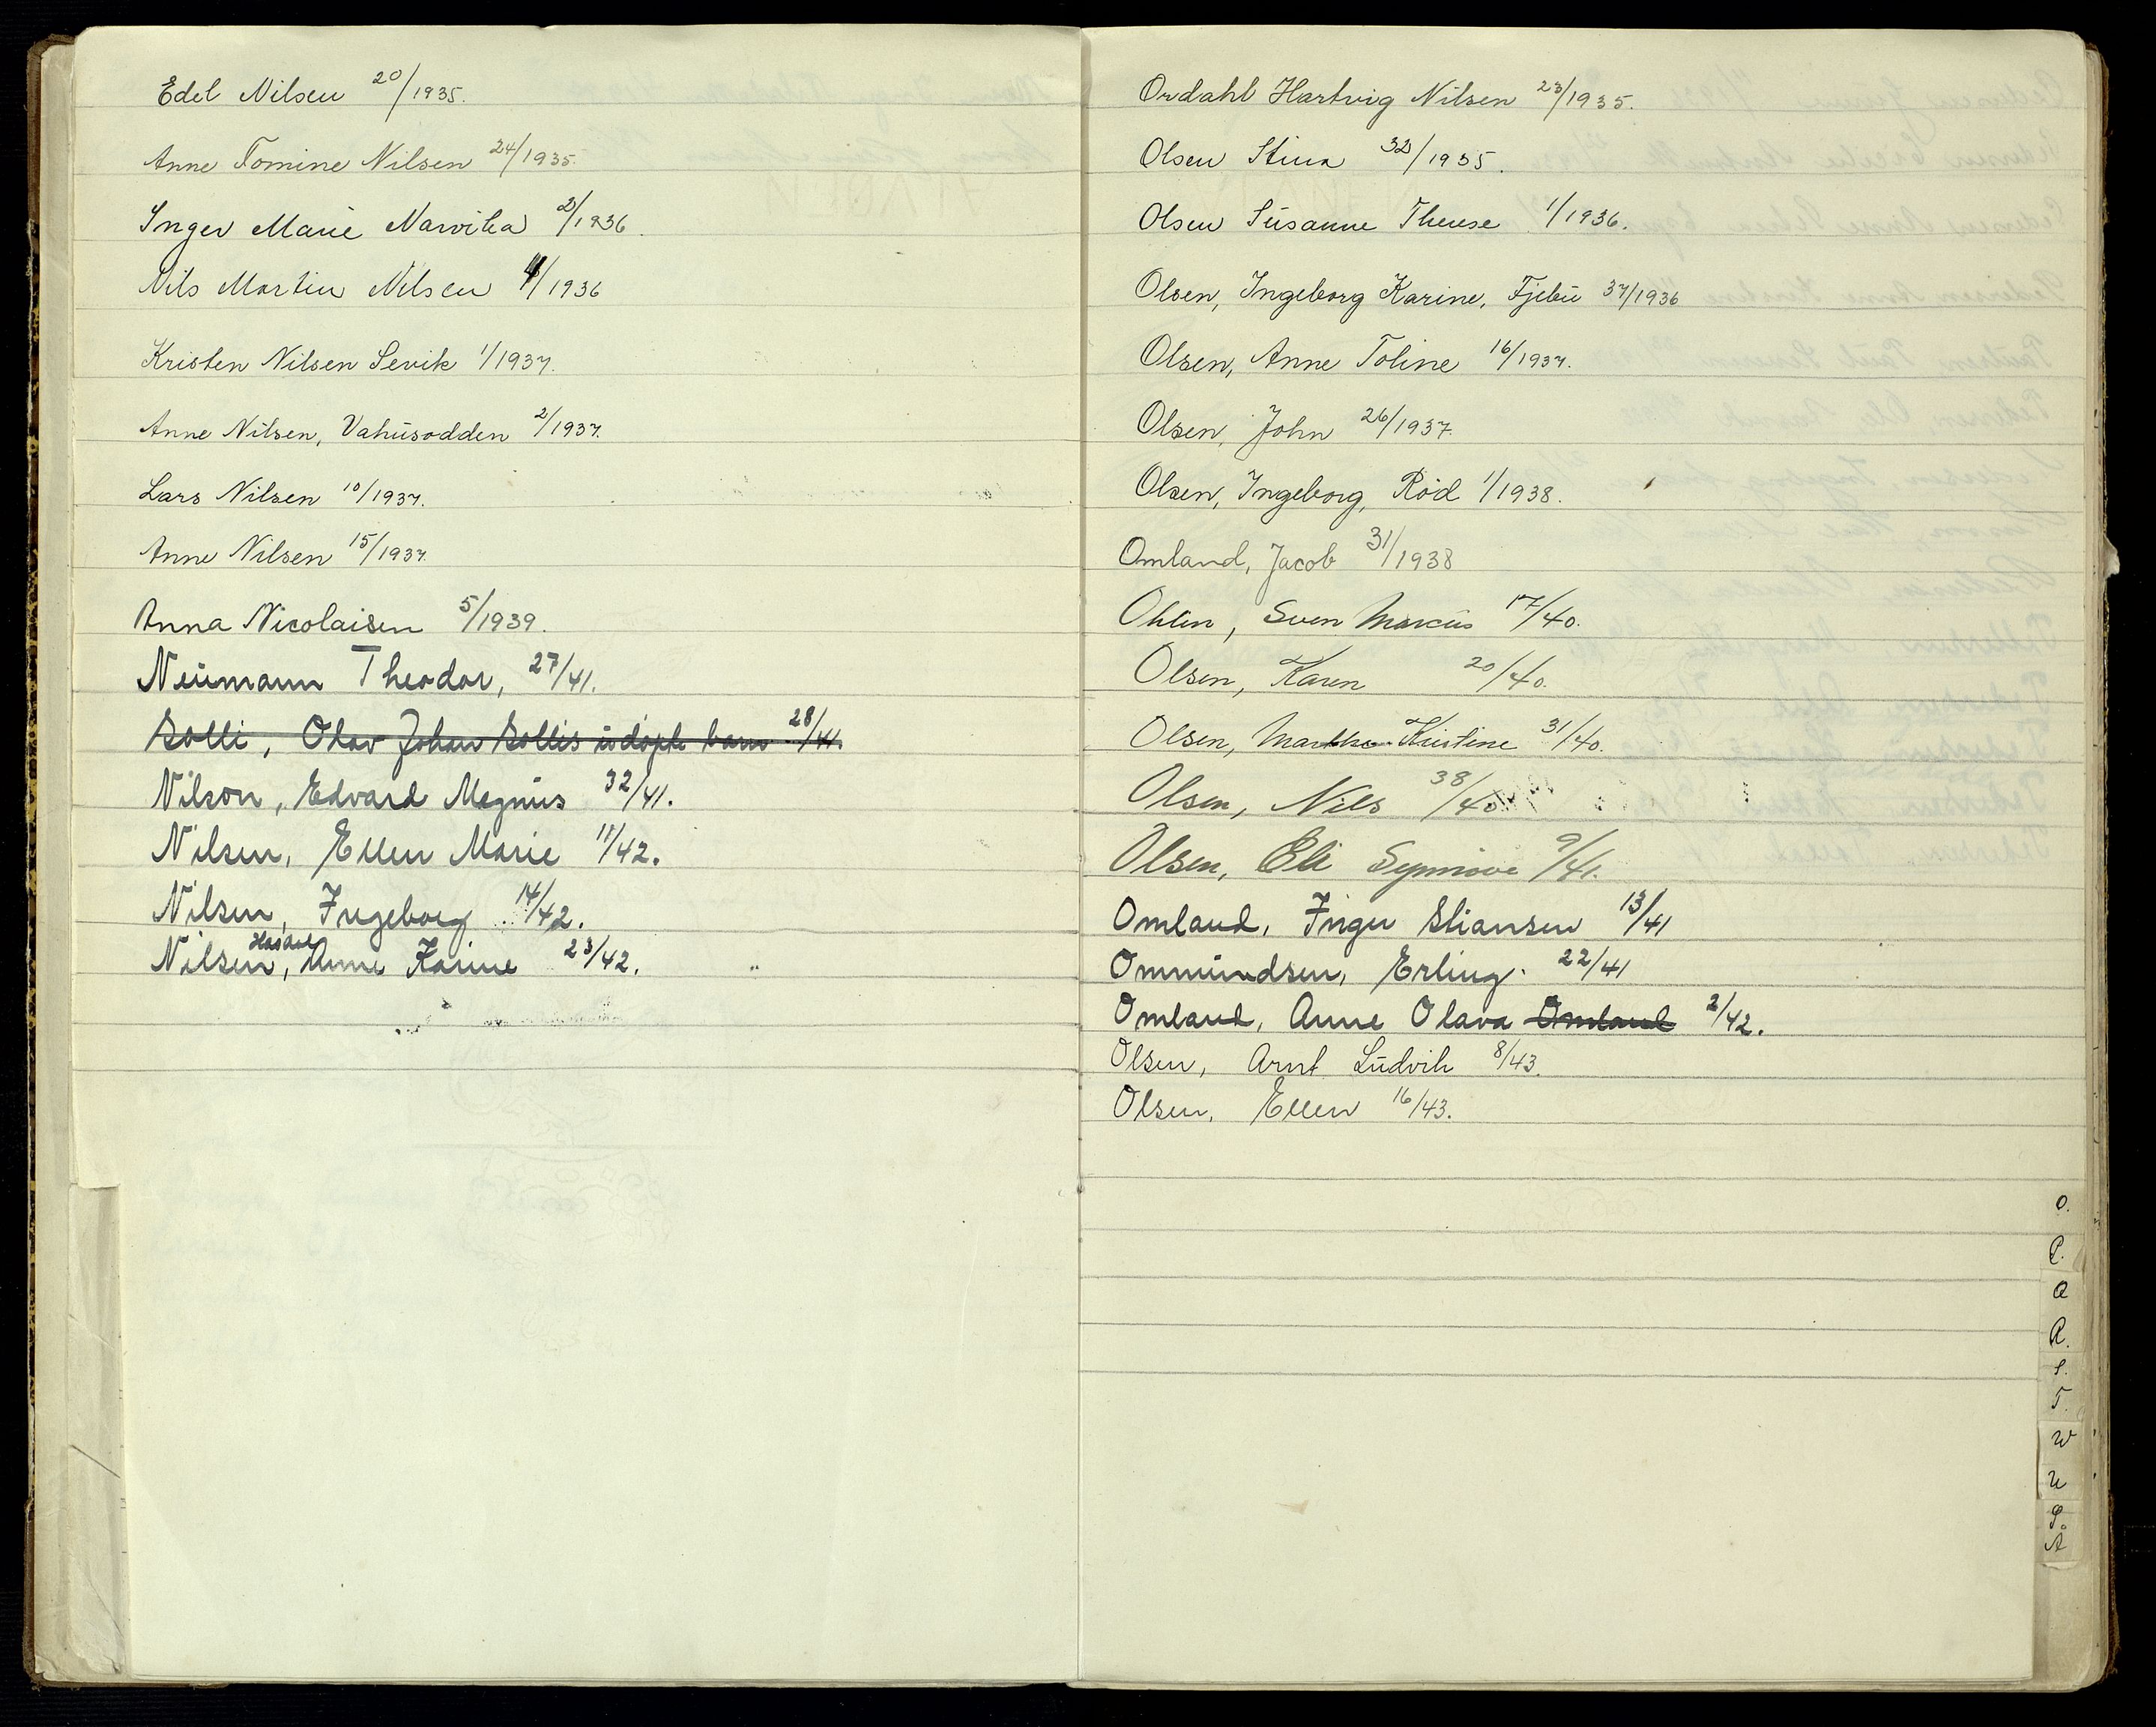 Edel Nilsen 20/1935.
Anne Tomine Nilsen 24/1935.
Inger Marie Narvika 2/1936.
Nils Martin Nilsen 4/1936
Kristen Nilsen Sevik 1/1937.
Anne Nilsen, Vahusodden 2/1937.
Lars Nilsen 10/1937.
Anne Nilsen 15/1937.
Anna Nicolaisen 5/1939.
Neumann Theodor, 27/41.
Solli, Olav Johan Sollis udøpte barn 28/41.
Nilson, Edvard Magnus 32/41.
Nilsen, Ellen Marie 11/42.
Nilsen, Ingeborg 14/42.
Nilsen, Anne Karine 23/42.
Ordahl Hartvig Nilsen 23/1935.
Olsen Stina 32/1935.
Olsen Susanne Therese 1/1936.
Olsen, Ingeborg Karine, Fjebu 37/1936
Olsen, Anne Toline 16/1937.
Olsen, John 26/1937.
Olsen, Ingeborg, Röd 1/1938.
Omland, Jacob 31/1938
Ohlin, Sven Marcus 17/40.
Olsen, Karen 20/40.
Olsen, Marthe Kristine 31/40.
Olsen, Nils 38/40.
Olsen, Eli Synnøve 9/41.
Omland, Inger Stiansen 13/41
Ommundsen, Erling. 22/41
Omland, Anne Olava Omland 2/42.
Olsen, Arnt Ludvik 8/43.
Olsen, Ellen 16/43.
O.
P.
Q
R.
S.
T.
W
U
Ø.
Å